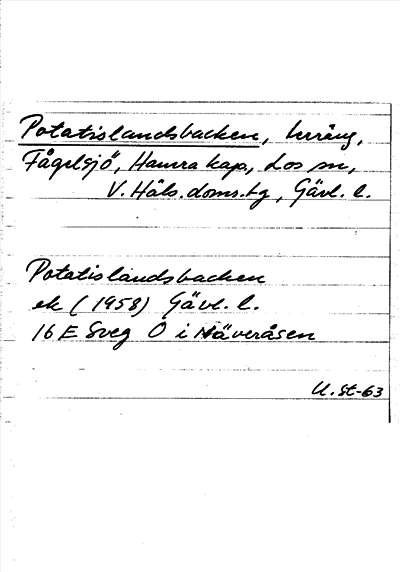 Potatislandsbacken, terräng,
Fågelsjö, Hamra kap., Los sn,
V. Häls. doms. tg, Gävl. l.
Potatislandsbacken
ek (1958) Gävl. l.
16 E Sveg O i Näveråsen
U. St-63